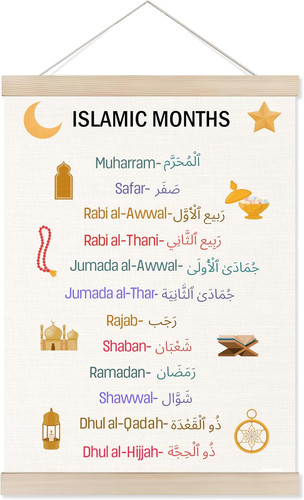 ISLAMIC MONTHS
Muharram- ٱلْمُحَرَّم
Safar- صَفَر
Rabi al-Awwal- رَبِيع ٱلْأَوَّل
Rabi al-Thani- رَبِيع ٱلثَّانِي
Jumada al-Awwal- جُمَادَىٰ ٱلْأُولَىٰ
Jumada al-Thar- جُمَادَىٰ ٱلثَّانِيَة
Rajab- رَجَب
Shaban- شَعْبَان
Ramadan- رَمَضَان
Shawwal- شَوَّال
Dhul al-Qadah- ذُو ٱلْقَعْدَة
Dhul al-Hijjah- ذُو ٱلْحِجَّة